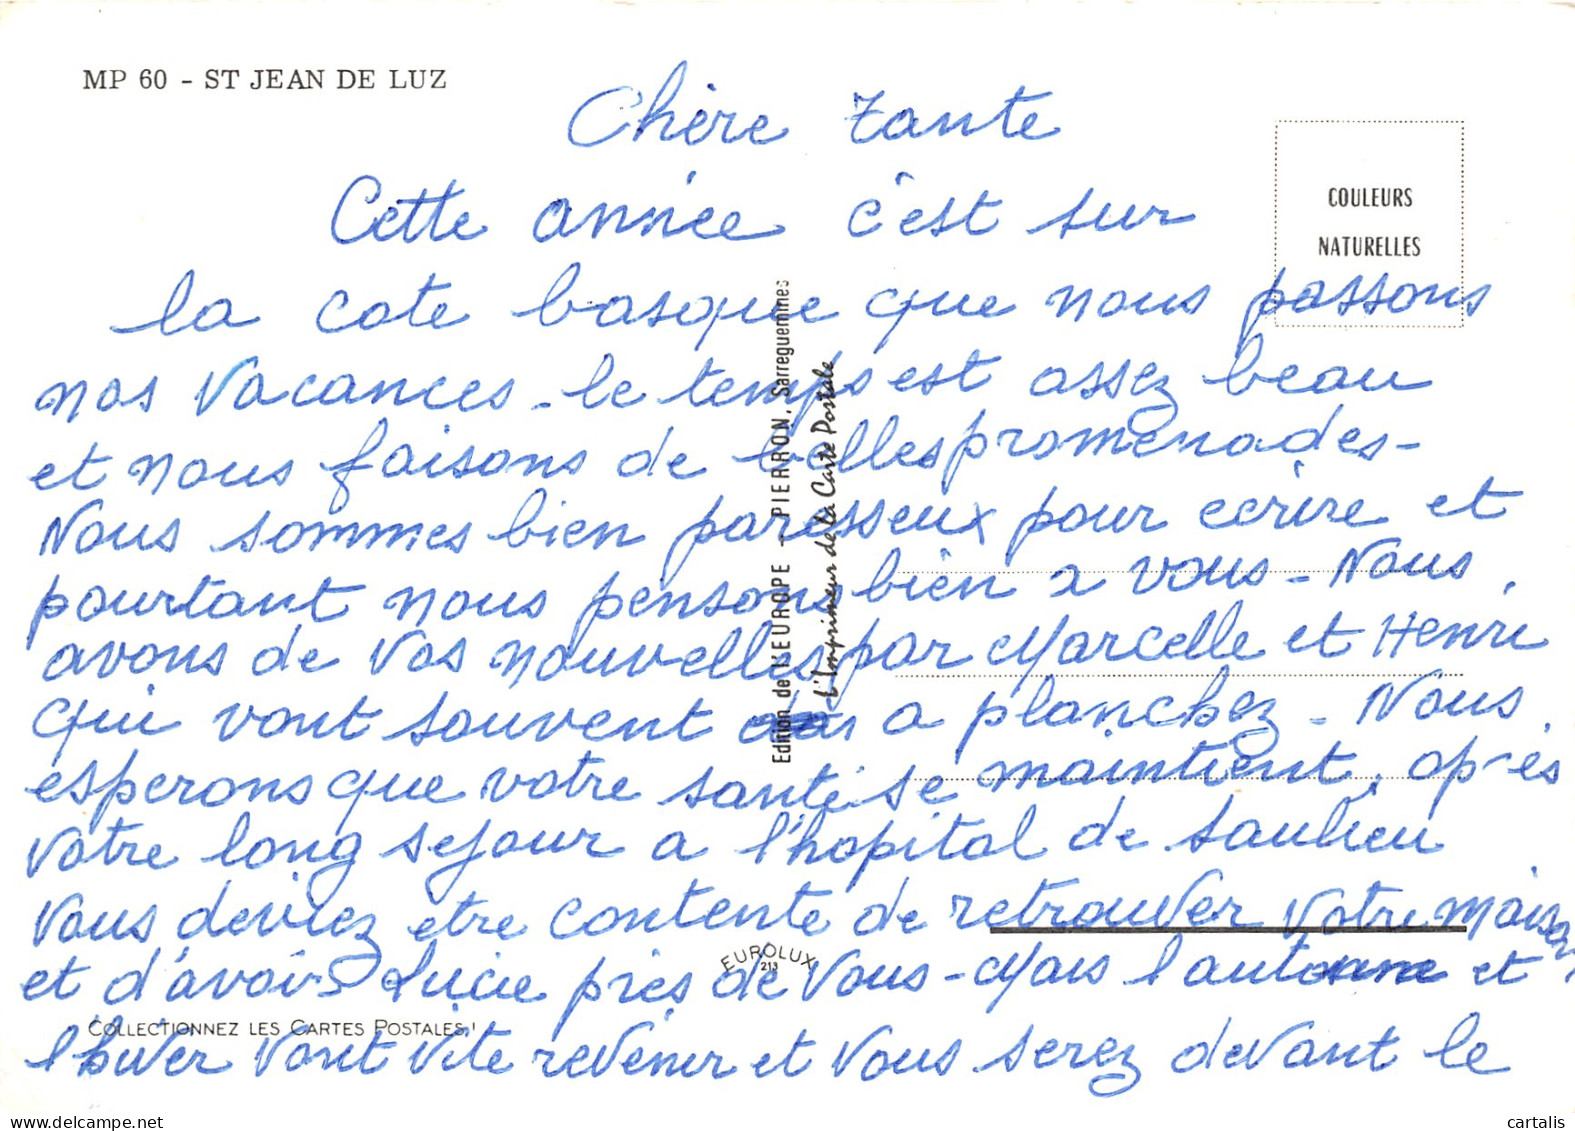 MP 60 - ST JEAN DE LUZ
Chère tante
Cette année c'est sur
COULEURS
NATURELLES
la cote basque que nous passons
nos vacances - le temps est assez beau
et nous faisons de belles promenades -
Nous sommes bien paresseux pour ecrire et
pourtant nous pensons bien a vous - Nous
avons de vos nouvelles par Marcelle et Henri
qui vont souvent a planchez - Nous
esperons que votre santé se maintient, après
votre long sejour a l'hopital de Saulieu
vous deviez etre contente de retrouver votre maison
et d'avoir Lucie près de vous - Mais l'automne et
l'hiver vont vite revenir et vous serez devant le
Edition de l'EUROPE - PIERRON, Sarreguemines
L'Imprimeur de la Carte Postale
EUROLUX
213
COLLECTIONNEZ LES CARTES POSTALES !
www.delcampe.net
cartalis